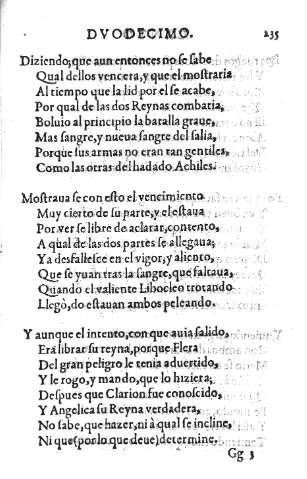 DVODECIMO. 235
Diziendo, que aun entonces no se sabe
Qual dellos vencera, y que el mostraria
Al tiempo que la lid por el se acabe,
Por qual de las dos Reynas combatia,
Boluio al principio la batalla graue,
Mas sangre, y nueua sangre del salia,
Porque sus armas no eran tan gentiles,
Como las otras del hadado Achiles.
Mostraua se con esto el vencimiento
Muy cierto de su parte, y el estaua
Por ver se libre de aclarar, contento,
A qual de las dos partes se allegaua;
Ya desfallesce en el vigor, y aliento,
Que se yuan tras la sangre, que faltaua,
Quando el valiente Libocleo trotando
Llegò, do estauan ambos peleando.
Y aunque el intento, con que auia salido,
Era librar su reyna, porque Flera
Del gran peligro le tenia aduertido,
Y le rogo, y mando, que lo hiziera;
Despues que Clarion fue conoscido,
Y Angelica su Reyna verdadera,
No sabe, que hazer, ni à qual se incline,
Ni que (por lo que deue) determine.
Gg 3